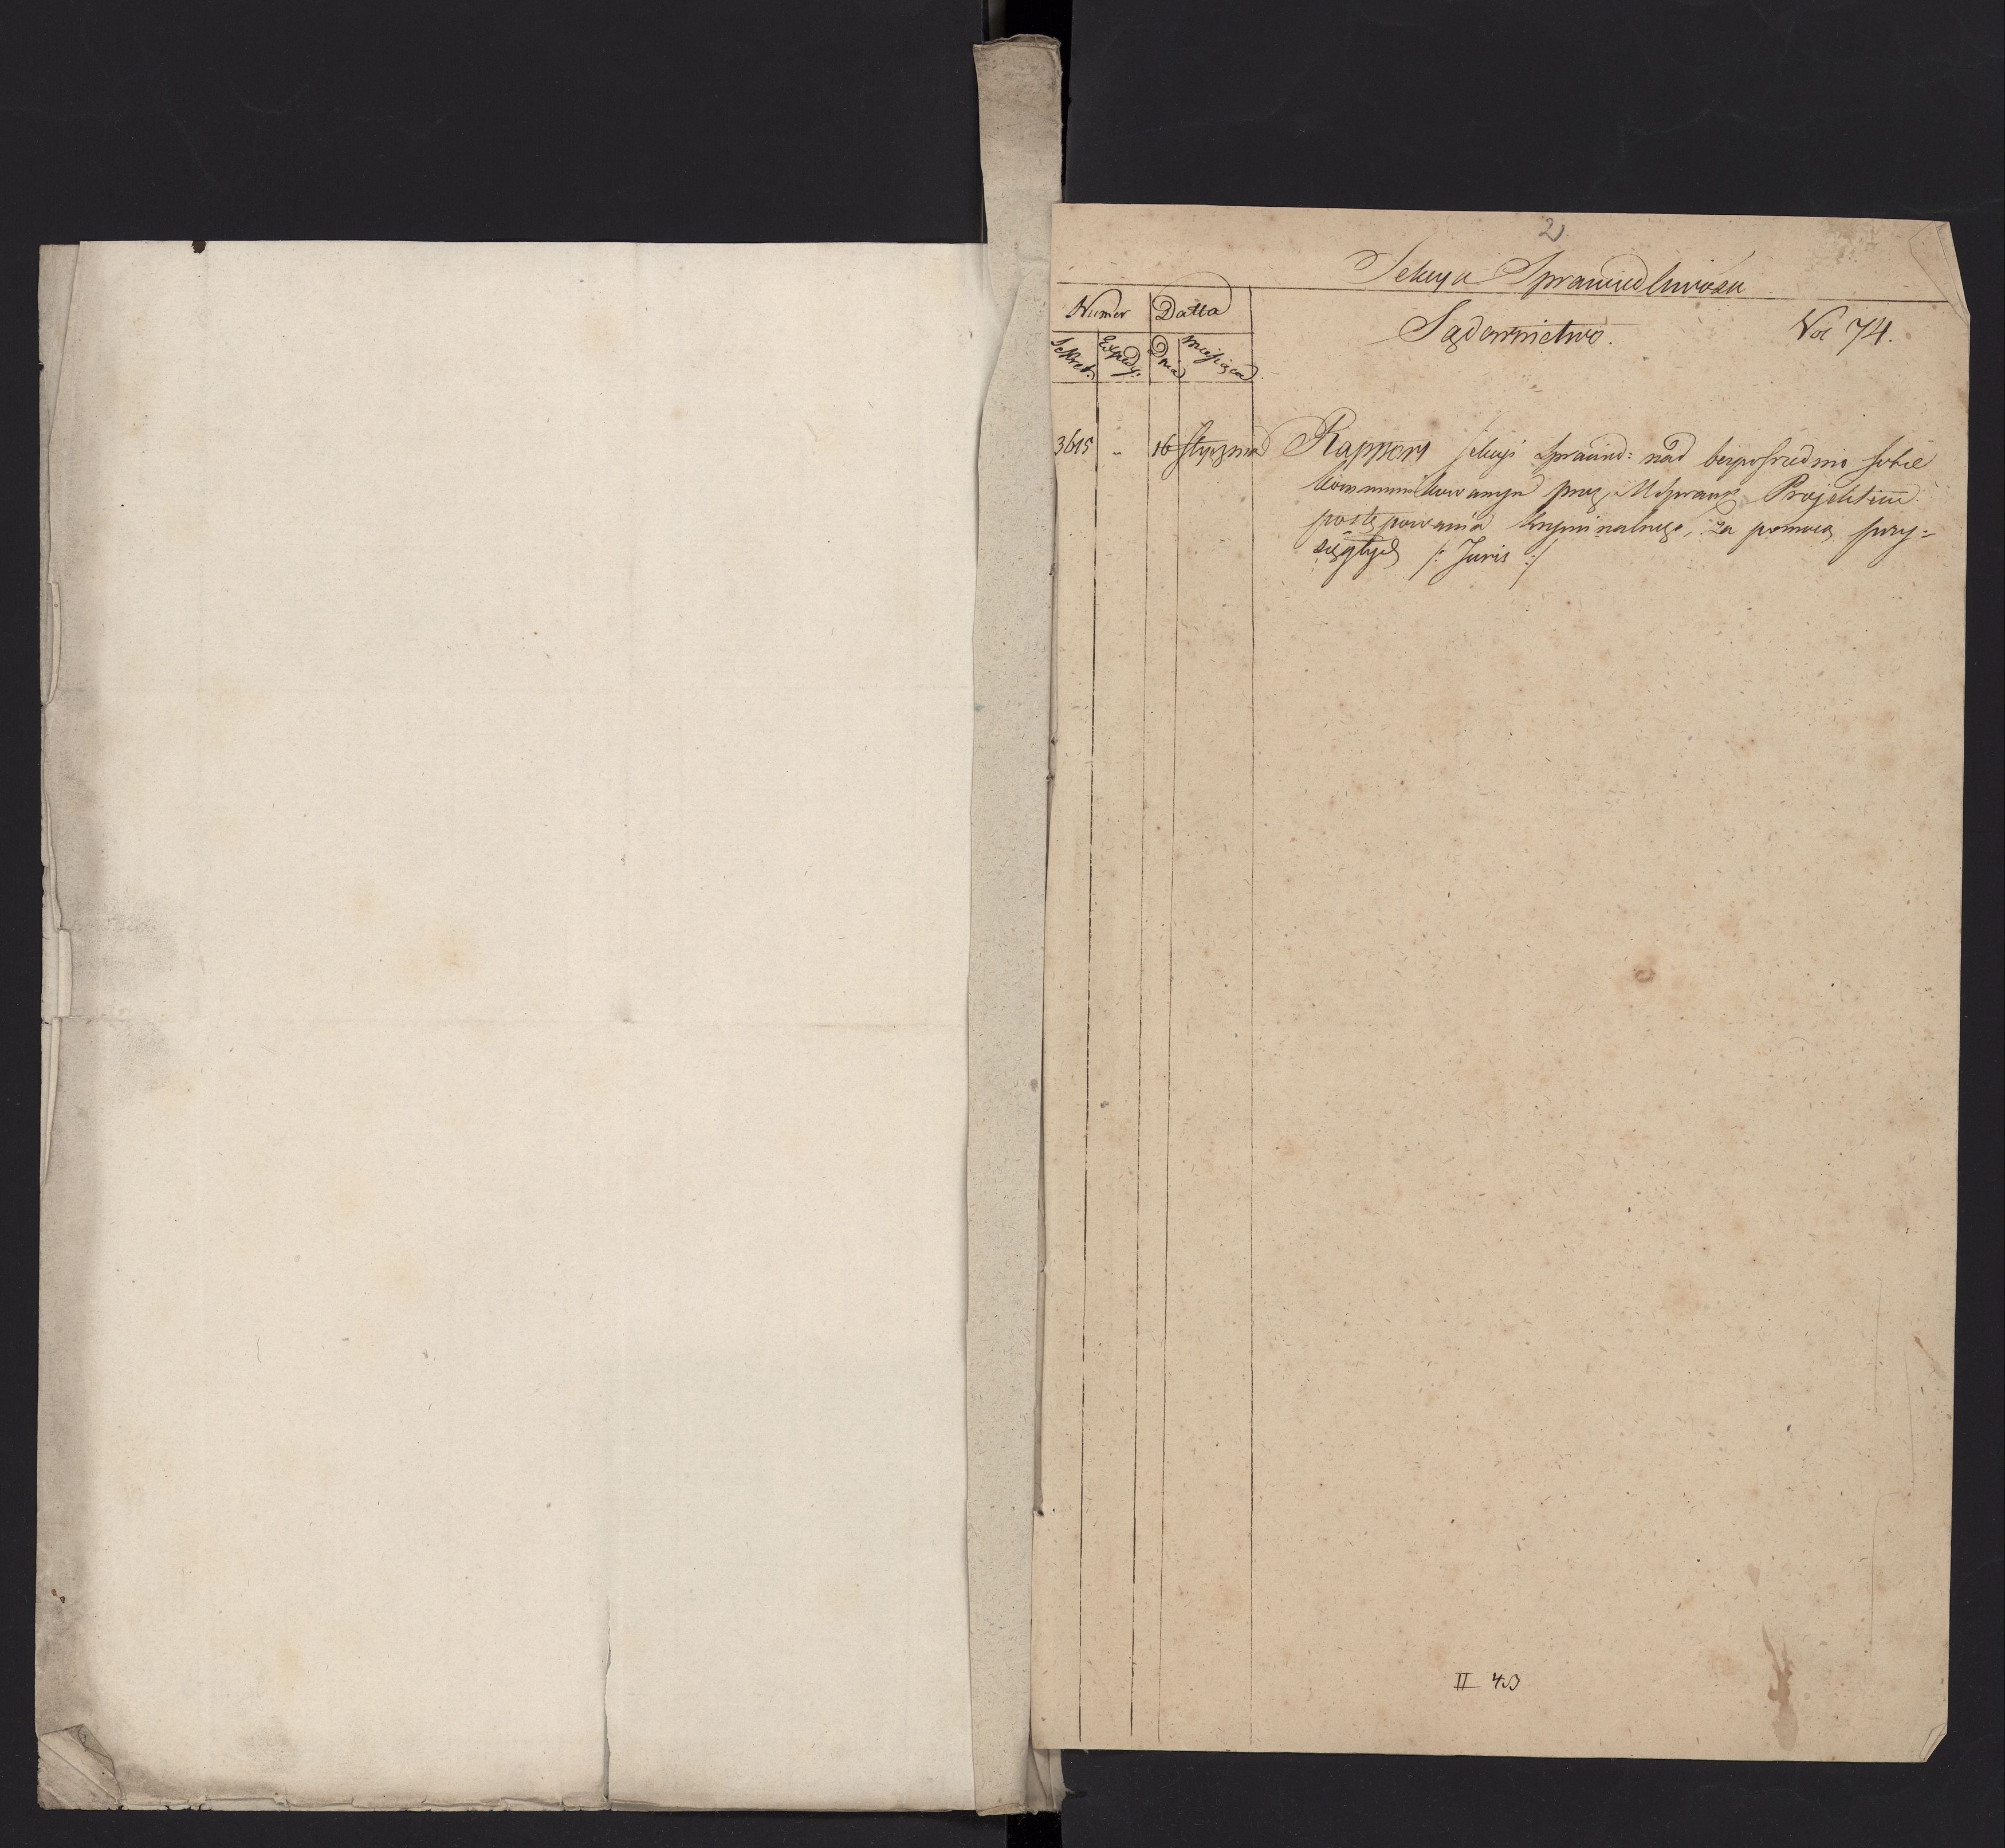 2
Sekcya Sprawiedliwości
Numer Datta
Sądownictwo. Vol 74.
Sekret: Expedy: Dnia Miesiąca
3615 - 16 stycznia Rapport Sekcyi Sprawied: nad bezpośrednio sobie
kommunikowanym przez Projektem
postępowania kryminalnego, za pomocą przy=
sięgłych /: Juris :/
II 43